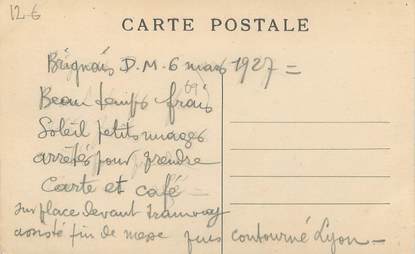 12 €
CARTE POSTALE
Brignais D.M. 6 mars 1927 =
(69)
Beau temps frais
Soleil petits nuages
arrêtés pour prendre
Carte et café
sur place devant tramway
assisté fin de messe puis contourné Lyon -